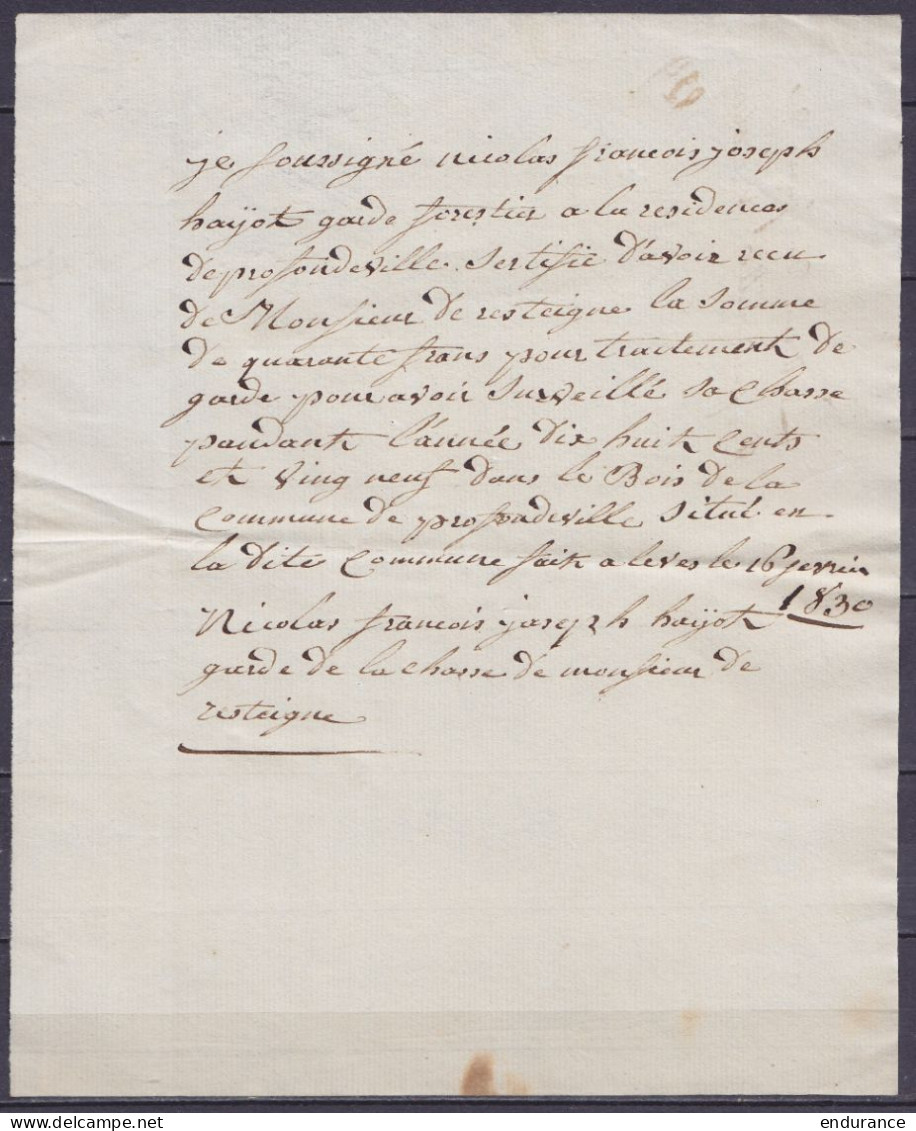 je soussigné nicolas francois joseph
haÿot garde forestier a la residences
de profondeville sertifie d'avoir recu
de Monsieur de resteigne la somme
de quarante frans pour traitement de
garde pour avoir surveillé sa chasse
pandant l'année dix huit cents
et ving neuf dans le Bois de la
commune de proffondeville situé en
la dite commune fait a leves le 16 fevrier
1830
Nicolas francois joseph haÿot
garde de la chasse de monsieur de
resteigne
delcampe.net
endurance